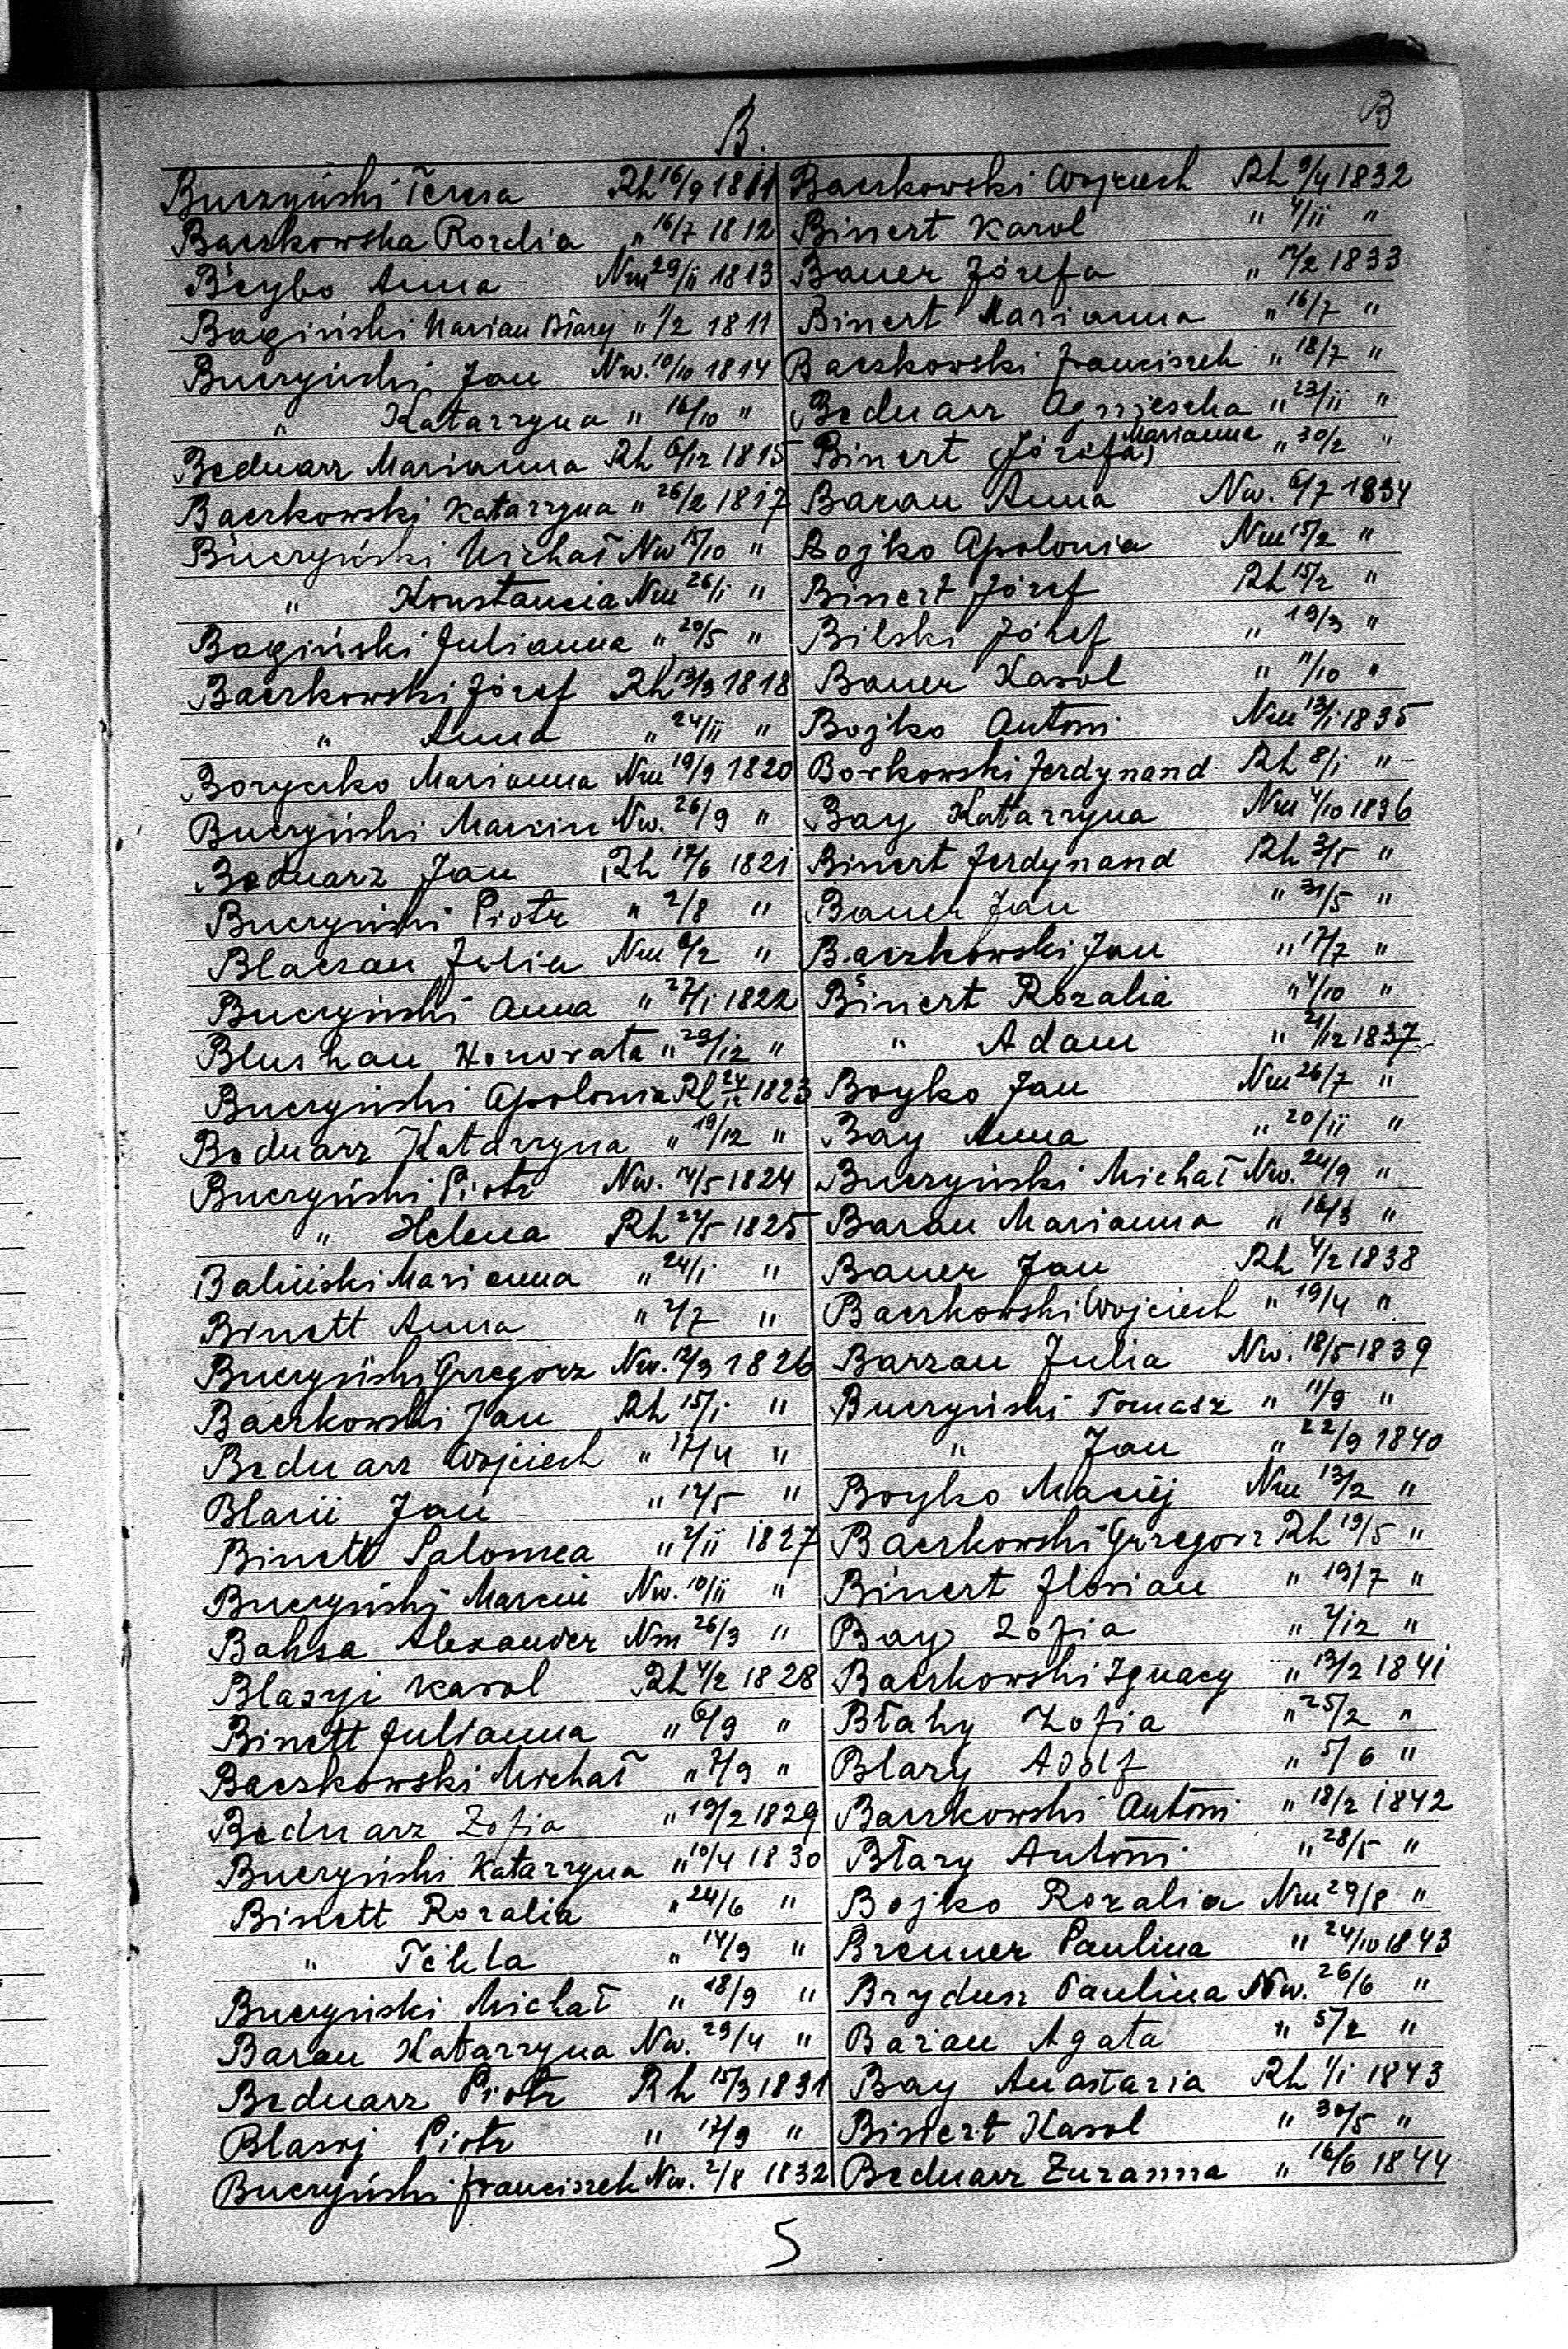 B.
B
Buczyński Teresa Rh 16/9 1811
Baczkowska Rozalia " 16/7 1812
Bcybo Anna Nm 29/ii 1813
Bagiński Marian Błarej " 1/2 1811
Buczyński Jan Nw. 10/10 1814
" Katarzyna " 16/10 "
Bednarz Marianna Rh 6/12 1815
Baczkowski Katarzyna " 26/2 1817
Buczyński Michał Nw 15/10 "
" Konstancia Nm 26/i "
Bagiński Julianna " 20/5 "
Baczkowski Józef Rh 13/3 1818
" Anna " 24/ii "
Boryczko Marianna Nm 19/9 1820
Buczyński Marcin Nw. 26/9 "
Bednarz Jan Rh 17/6 1821
Buczyński Piotr " 2/8 "
Blaczan Julia Nm 6/2 "
Buczyński Anna " 27/i 1822
Blushan Honorata " 29/12 "
Buczyński Apolonia Rh 24/12 1823
Bednarz Katarzyna " 19/12 "
Buczyński Piotr Nw. 14/5 1824
" Helena Rh 22/5 1825
Baliński Marianna " 24/i "
Binett Anna " 2/7 "
Buczyński Grzegorz Nw. 12/3 1826
Baczkowski Jan Rh 15/i "
Bednarz Wojciech " 17/4 "
Blaszii Jan " 12/5 "
Binett Salomea " 2/ii 1827
Buczyński Marcin Nw. 10/ii "
Baksa Alexander Nm 26/3 "
Blazyi Karol Rh 4/2 1828
Binett Julianna " 6/9 "
Baczkowski Michał " 7/9 "
Bednarz Zofia " 19/2 1829
Buczyński Katarzyna " 10/4 1830
Binett Rozalia " 24/6 "
" Tekla " 14/9 "
Buczyński Michał " 18/9 "
Baran Katarzyna Nw. 29/4 "
Bednarz Piotr Rh 15/3 1831
Blasyj Piotr " 17/9 "
Buczyński Franciszek Nw. 2/8 1832
Baczkowski Wojciech Rh 9/4 1832
Binert Karol " 4/ii "
Bauer Józefa " 17/2 1833
Binert Marianna " 16/7 "
Baczkowski Franciszek " 18/7 "
Bednarz Agnieszka " 23/ii "
Binert (Józefa) Marianna " 30/2 "
Baran Anna Nw. 6/7 1834
Bojko Apolonia Nm 15/2 "
Binert Józef Rh 15/2 "
Bilski Józef " 19/3 "
Bauer Karol " 11/10 "
Bojko Antoni Nm 13/i 1835
Borkowski Ferdynand Rh 8/i "
Bay Katarzyna Nm 4/10 1836
Binert Ferdynand Rh 3/5 "
Bauer Jan " 31/5 "
Baczkowski Jan " 17/7 "
Binert Rozalia " 4/10 "
" Adam " 21/12 1837
Boyko Jan Nm 26/7 "
Bay Anna " 20/ii "
Buczyński Michał Nw. 24/9 "
Baran Marianna " 16/3 "
Bauer Jan Rh 4/2 1838
Baczkowski Wojciech " 19/4 "
Barzan Julia Nw. 18/5 1839
Buczyński Tomasz " 11/9 "
" Jan " 22/9 1840
Boyko Maciej Nm 13/2 "
Baczkowski Grzegorz Rh 19/5 "
Binert Florian " 19/7 "
Bay Zofia " 7/12 "
Baczkowski Ignacy " 13/2 1841
Błahy Zofia " 25/2 "
Blazy Adolf " 5/6 "
Baczkowski Antoni " 18/2 1842
Błazy Antoni " 28/5 "
Bojko Rozalia Nm 29/8 "
Brenner Paulina " 24/10 1843
Brydusz Paulina Nw. 26/6 "
Baran Agata " 5/2 "
Bay Anastazia Rh 1/i 1843
Binert Karol " 30/5 "
Bednarz Zuzanna " 16/6 1844
5